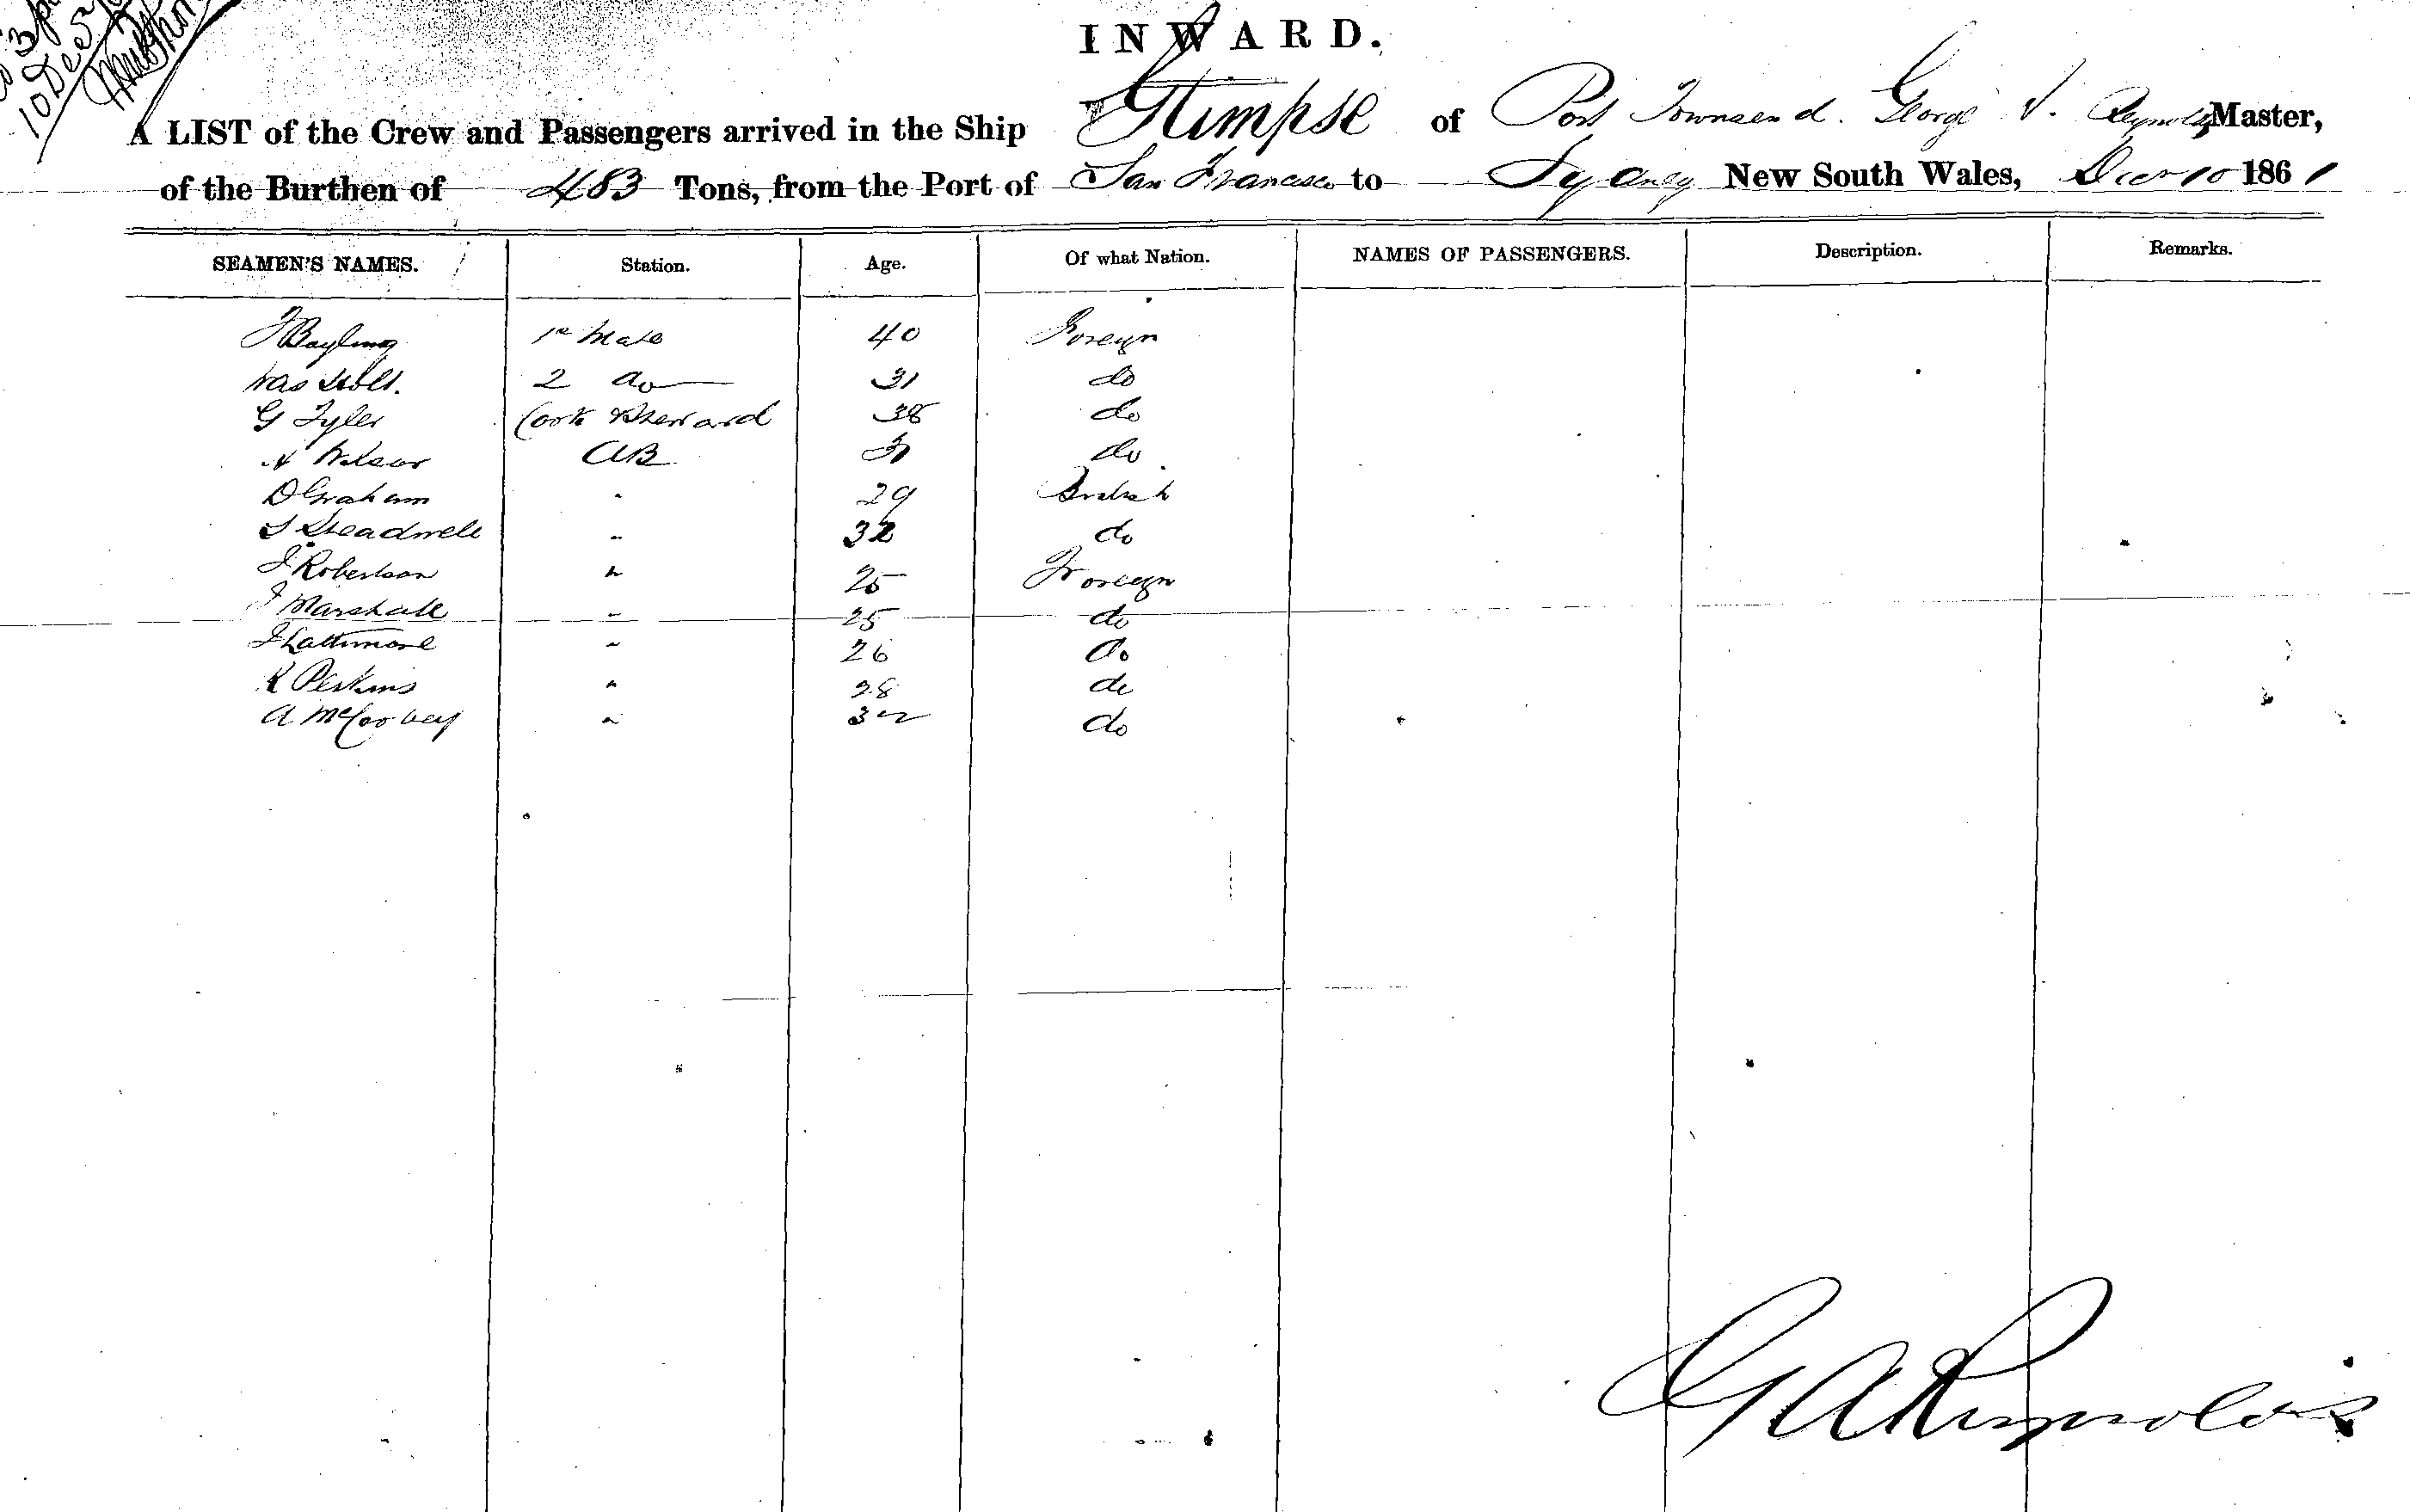 3 p
10 De
INWARD.
A LIST of the Crew and Passengers arrived in the Ship Glimpse of Port Townsend. George Reynolds Master,
of the Burthen of 483 Tons, from the Port of San Francisco to Sydney New South Wales, Decr 10 1861
SEAMEN'S NAMES. Station. Age. Of what Nation. NAMES OF PASSENGERS. Description. Remarks.
Bayling 1st Mate 40 Foreign
2 do 31 do
G Tyler Cook & Steward 38 do
Wilson AB do
D Graham 29 British
S Steadwell 32 do
J Robertson 25 Foreign
J Marshall 25 do
J Lattimore 26 do
K Perkins 28 do
A 32 do
G A Reynolds